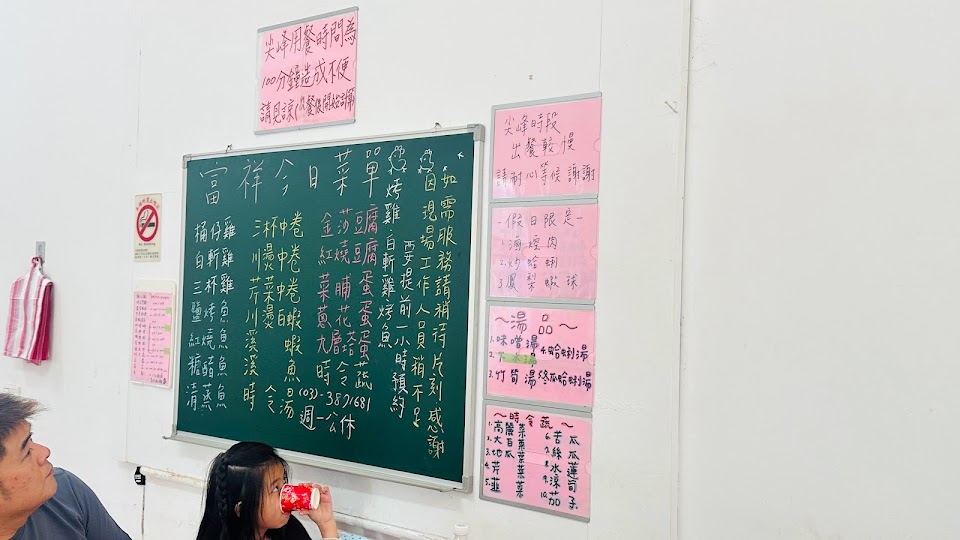 尖峰用餐時間為
100分鐘造成不便
請見諒(
富祥今日菜單
桶仔雞
白斬雞
三杯雞
鹽烤魚
紅燒魚
糖醋魚
清蒸魚
三杯中卷
川燙中卷
芹菜中卷
川燙白蝦
溪蝦
溪魚
時令湯
金莎豆腐
紅燒豆腐
菜脯蛋
蔥花蛋
九層塔蛋
時令蔬
(03)-3871681
週一公休
烤雞.白斬雞.烤魚
要提前一小時預約
因現場工作人員稍不足
如需服務請稍待片刻.感謝
尖峰時段
出餐較慢
請耐心等候謝謝
-假日限定-
1.鹹燻肉
2.炒蛤蜊
3.鳳梨蝦球
～湯品～
1.味噌湯 4.蛤蜊湯
2.下水湯
3.竹筍湯 5.冬瓜蛤蜊湯
～時令蔬～
1.高麗菜 6.苦瓜
2.大白菜 7.絲瓜
3.地瓜葉 8.水蓮
4.芹菜
5.韭菜 10.茄子